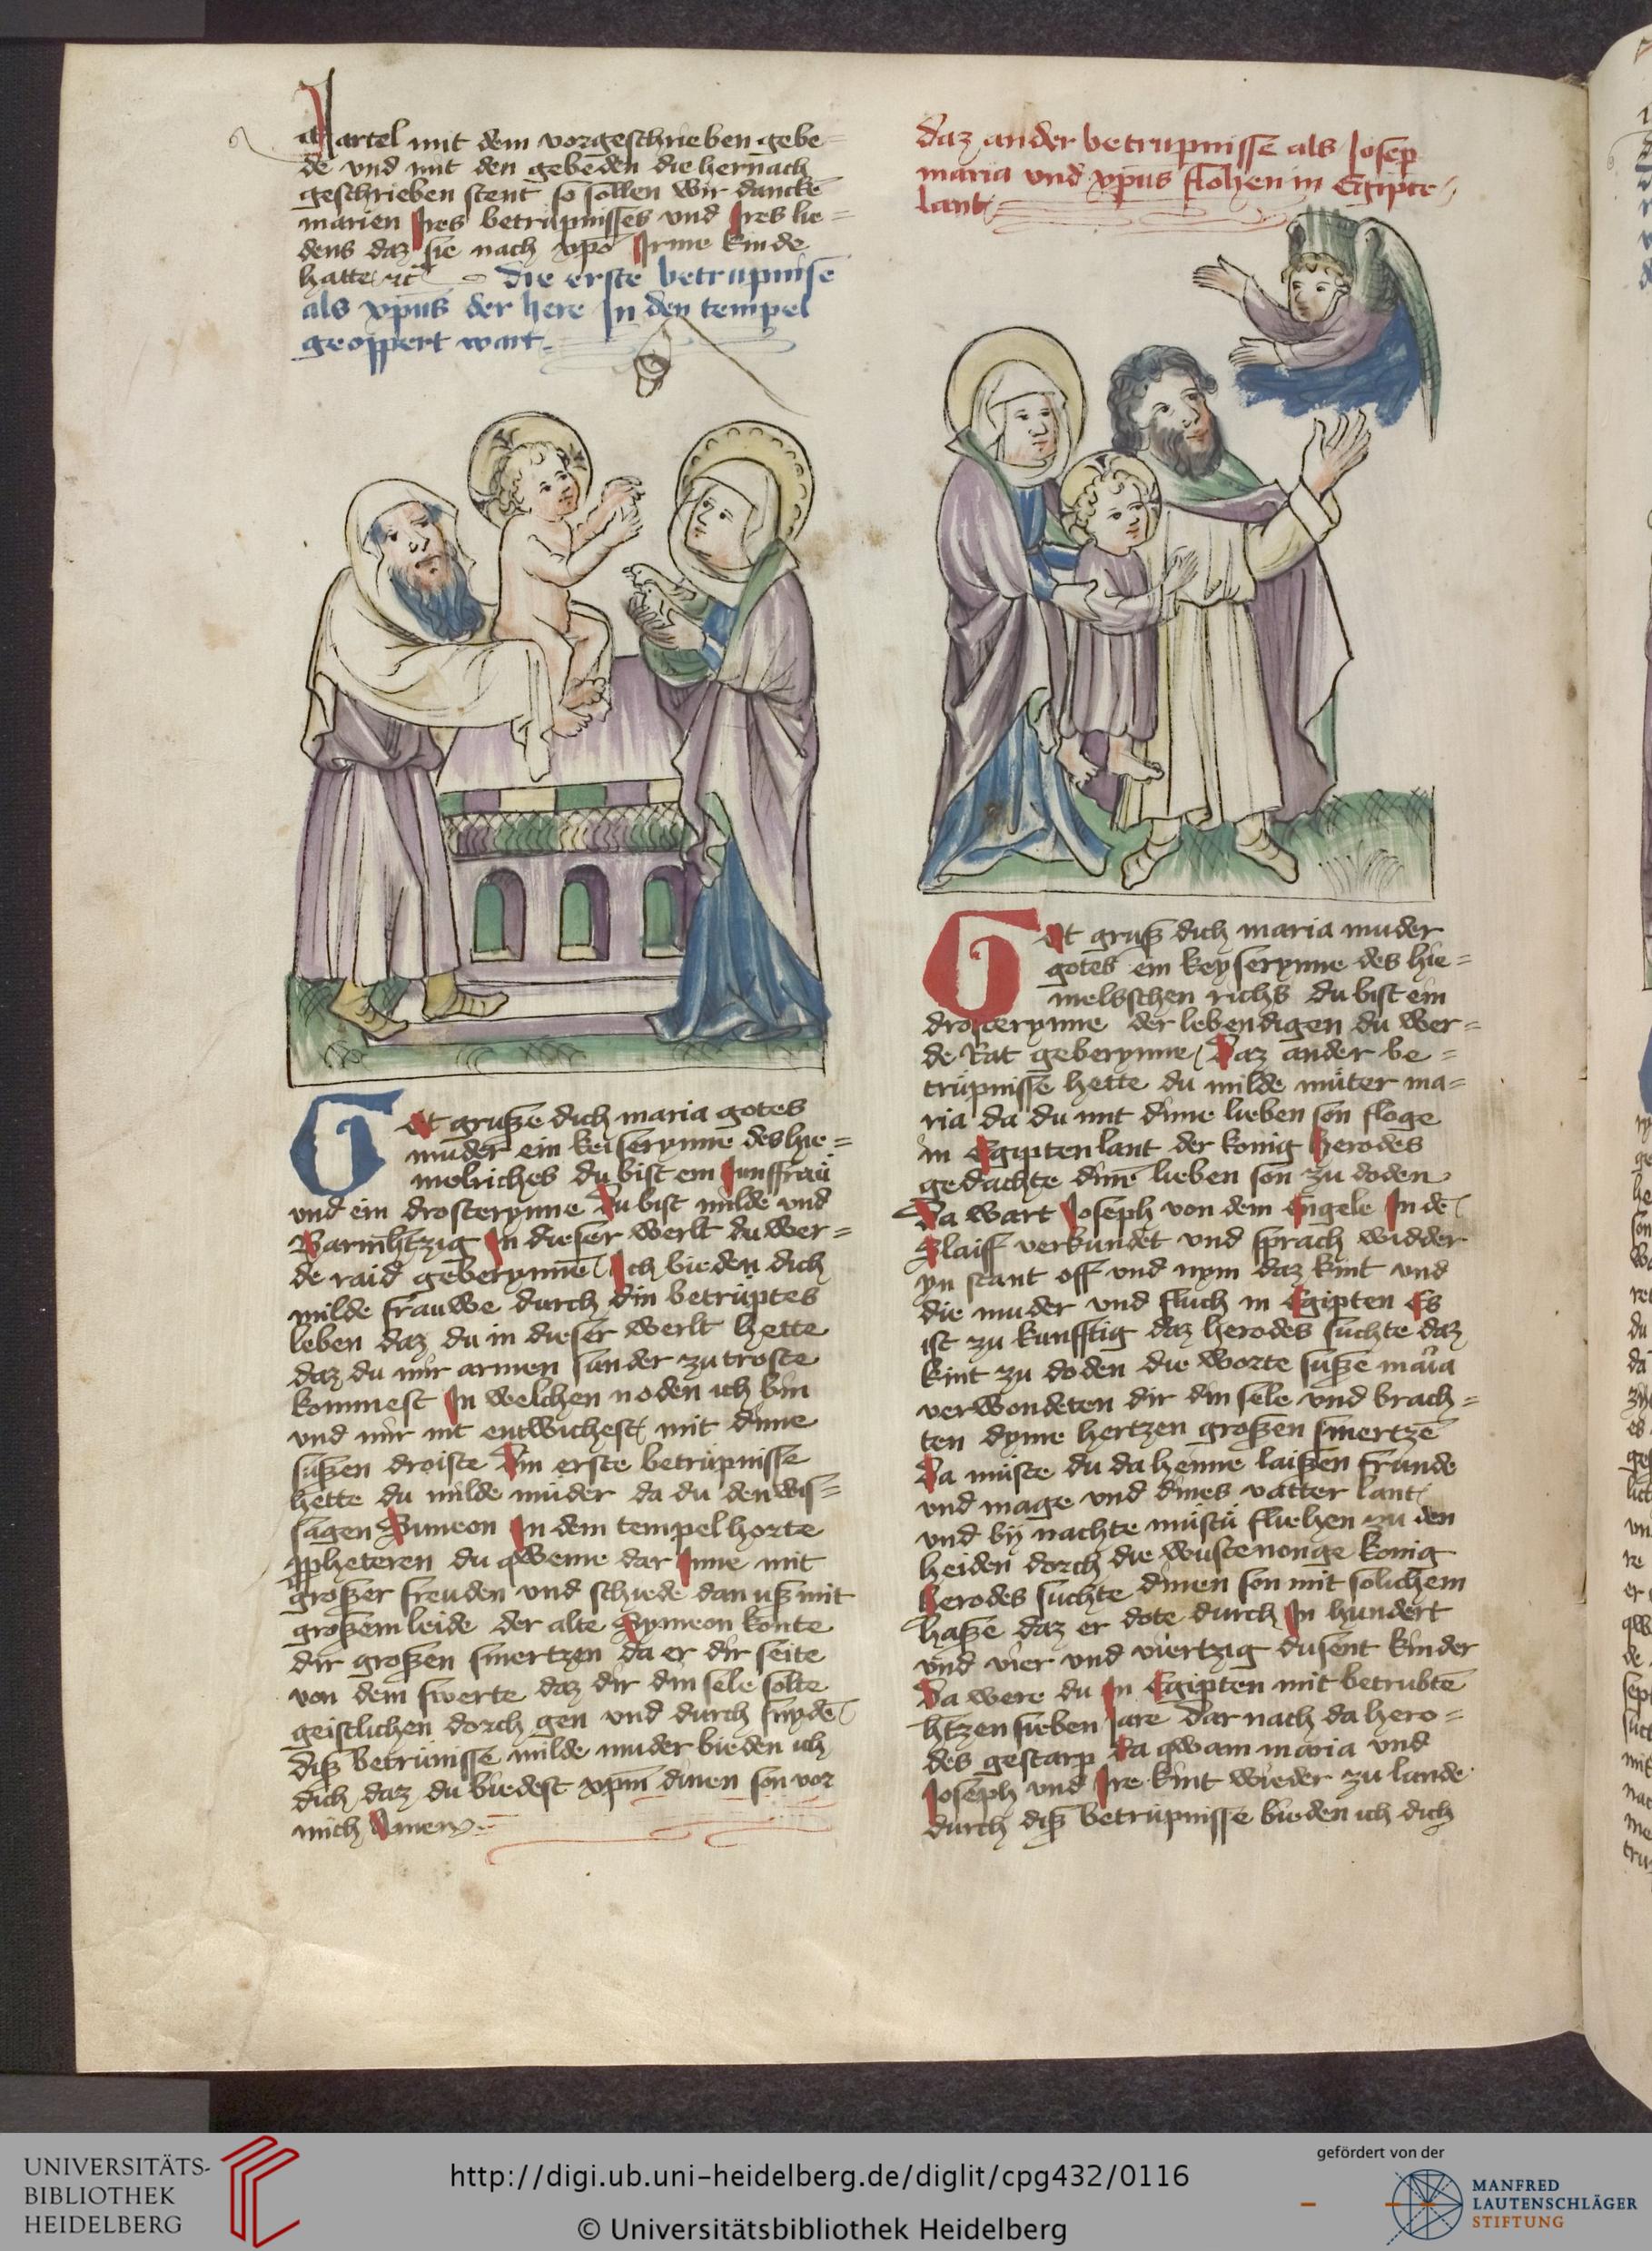 Martel mit dem vorgeschrieben gebe=
de vnd mit den gebeden die hernach
geschrieben stent so sollen wir dancke
marien Ires betrupnisses vnd Ires lie=
dens daz sie nach xpo Irme kinde
hatte
die erste betrupnise
als xpus der here In den tempel
geoppert wart
Got grusze dich maria gotes
muder ein keiserynne des hie=
melriches du bist ein Junffrau
vnd ein drosterynne Du bist milde vnd
Barmhtzig In dieser werlt du wer=
de raid geberynne Ich bieden dich
milde frauwe durch din betruptes
leben daz du in dieser werlt hette
daz du mir armen sunder zu troste
kommest In welchen noden ich bin
vnd mir nit entwichest mit dime
suszen droiste Din erste betrupnisse
hette du milde muder da du den wis=
sagen Simeon In dem tempel horte
ppheteren du qweme dar Inne mit
groszer freuden vnd schiede dan usz mit
groszem leide der alte Symeon konte
dir groszen smertzen da er dir seite
von dem swerte daz dir din sele solte
geistlichen dorch gen vnd durch snyde
disz betrunisse milde muder bieden ich
dich daz du biedest xpm dinen son vor
mich Amen
daz ander betrupnisse als Josep
maria vnd xpus flohen in Egipte
lant
Got grusz dich maria muder
gotes ein keyserynne des hie=
melsschen richs du bist ein
drosterynne der lebendigen du wer=
de Rat geberynne Daz ander be=
trupnisse hette du milde muter ma=
ria da du mit dime lieben son floge
in Egipten lant der konig Herodes
gedachte dine lieben son zu doden
Da wart Joseph von dem Engele In de
Slaiff verkundet vnd sprach widder
yn stant off vnd nym daz kint vnd
die muder vnd fluch in Egipten Es
ist zu kunfftig daz herodes suchte daz
kint zu doden die worte susze maria
verwondeten dir din sele vnd brach=
ten dyme hertzen groszen smertze
Da muste du da henne laiszen frunde
vnd mage vnd dines vatter lant
vnd by nachte mustu fliehen zu den
heiden dorch die wustenonge konig
Herodes suchte dinen son mit solichem
Hasze daz er dote durch In hundert
vnd vier vnd viertzig dusent kinder
Da were du In Egipten mit betrubte
htzen sieben Jare Dar nach da hero=
des gestarp Da qwam maria vnd
Joseph vnd Ire kint wieder zu lande
durch disz betrupnisse bieden ich dich
UNIVERSITÄTS-
BIBLIOTHEK
HEIDELBERG
http://digi.ub.uni-heidelberg.de/diglit/cpg432/0116
© Universitätsbibliothek Heidelberg
gefördert von der
MANFRED
LAUTENSCHLÄGER
STIFTUNG